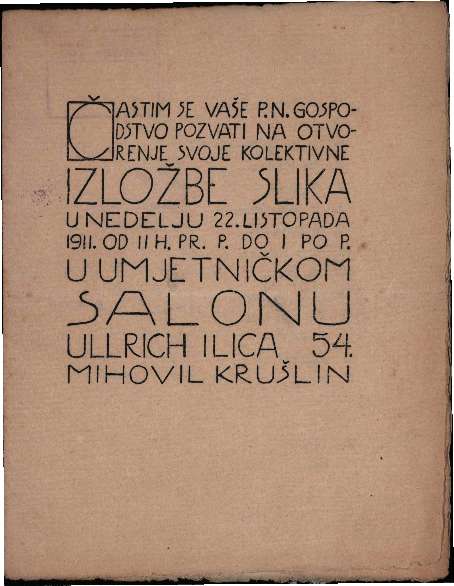 ČASTIM SE VAŠE P.N. GOSPO-
DSTVO POZVATI NA OTVO-
RENJE SVOJE KOLEKTIVNE
IZLOŽBE SLIKA
U NEDELJU 22. LISTOPADA
1911. OD 11 H. PR. P. DO 1 PO P.
U UMJETNIČKOM
SALONU
ULLRICH ILICA 54.
MIHOVIL KRUŠLIN